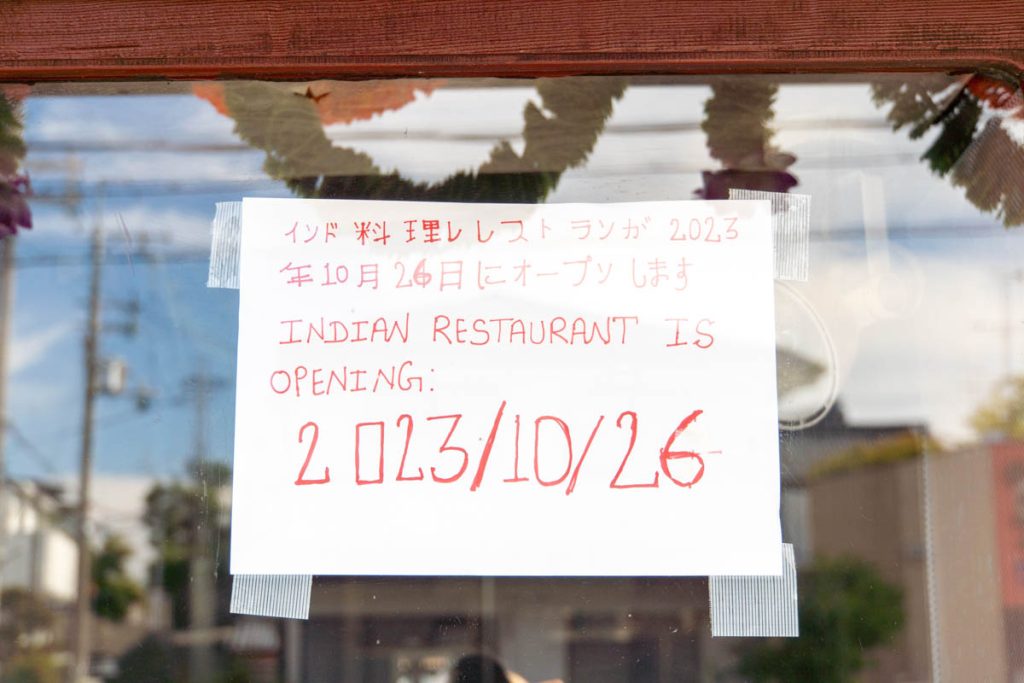 インド料理レレストランが 2023
年10月26日にオープンします
INDIAN RESTAURANT IS
OPENING:
2023/10/26